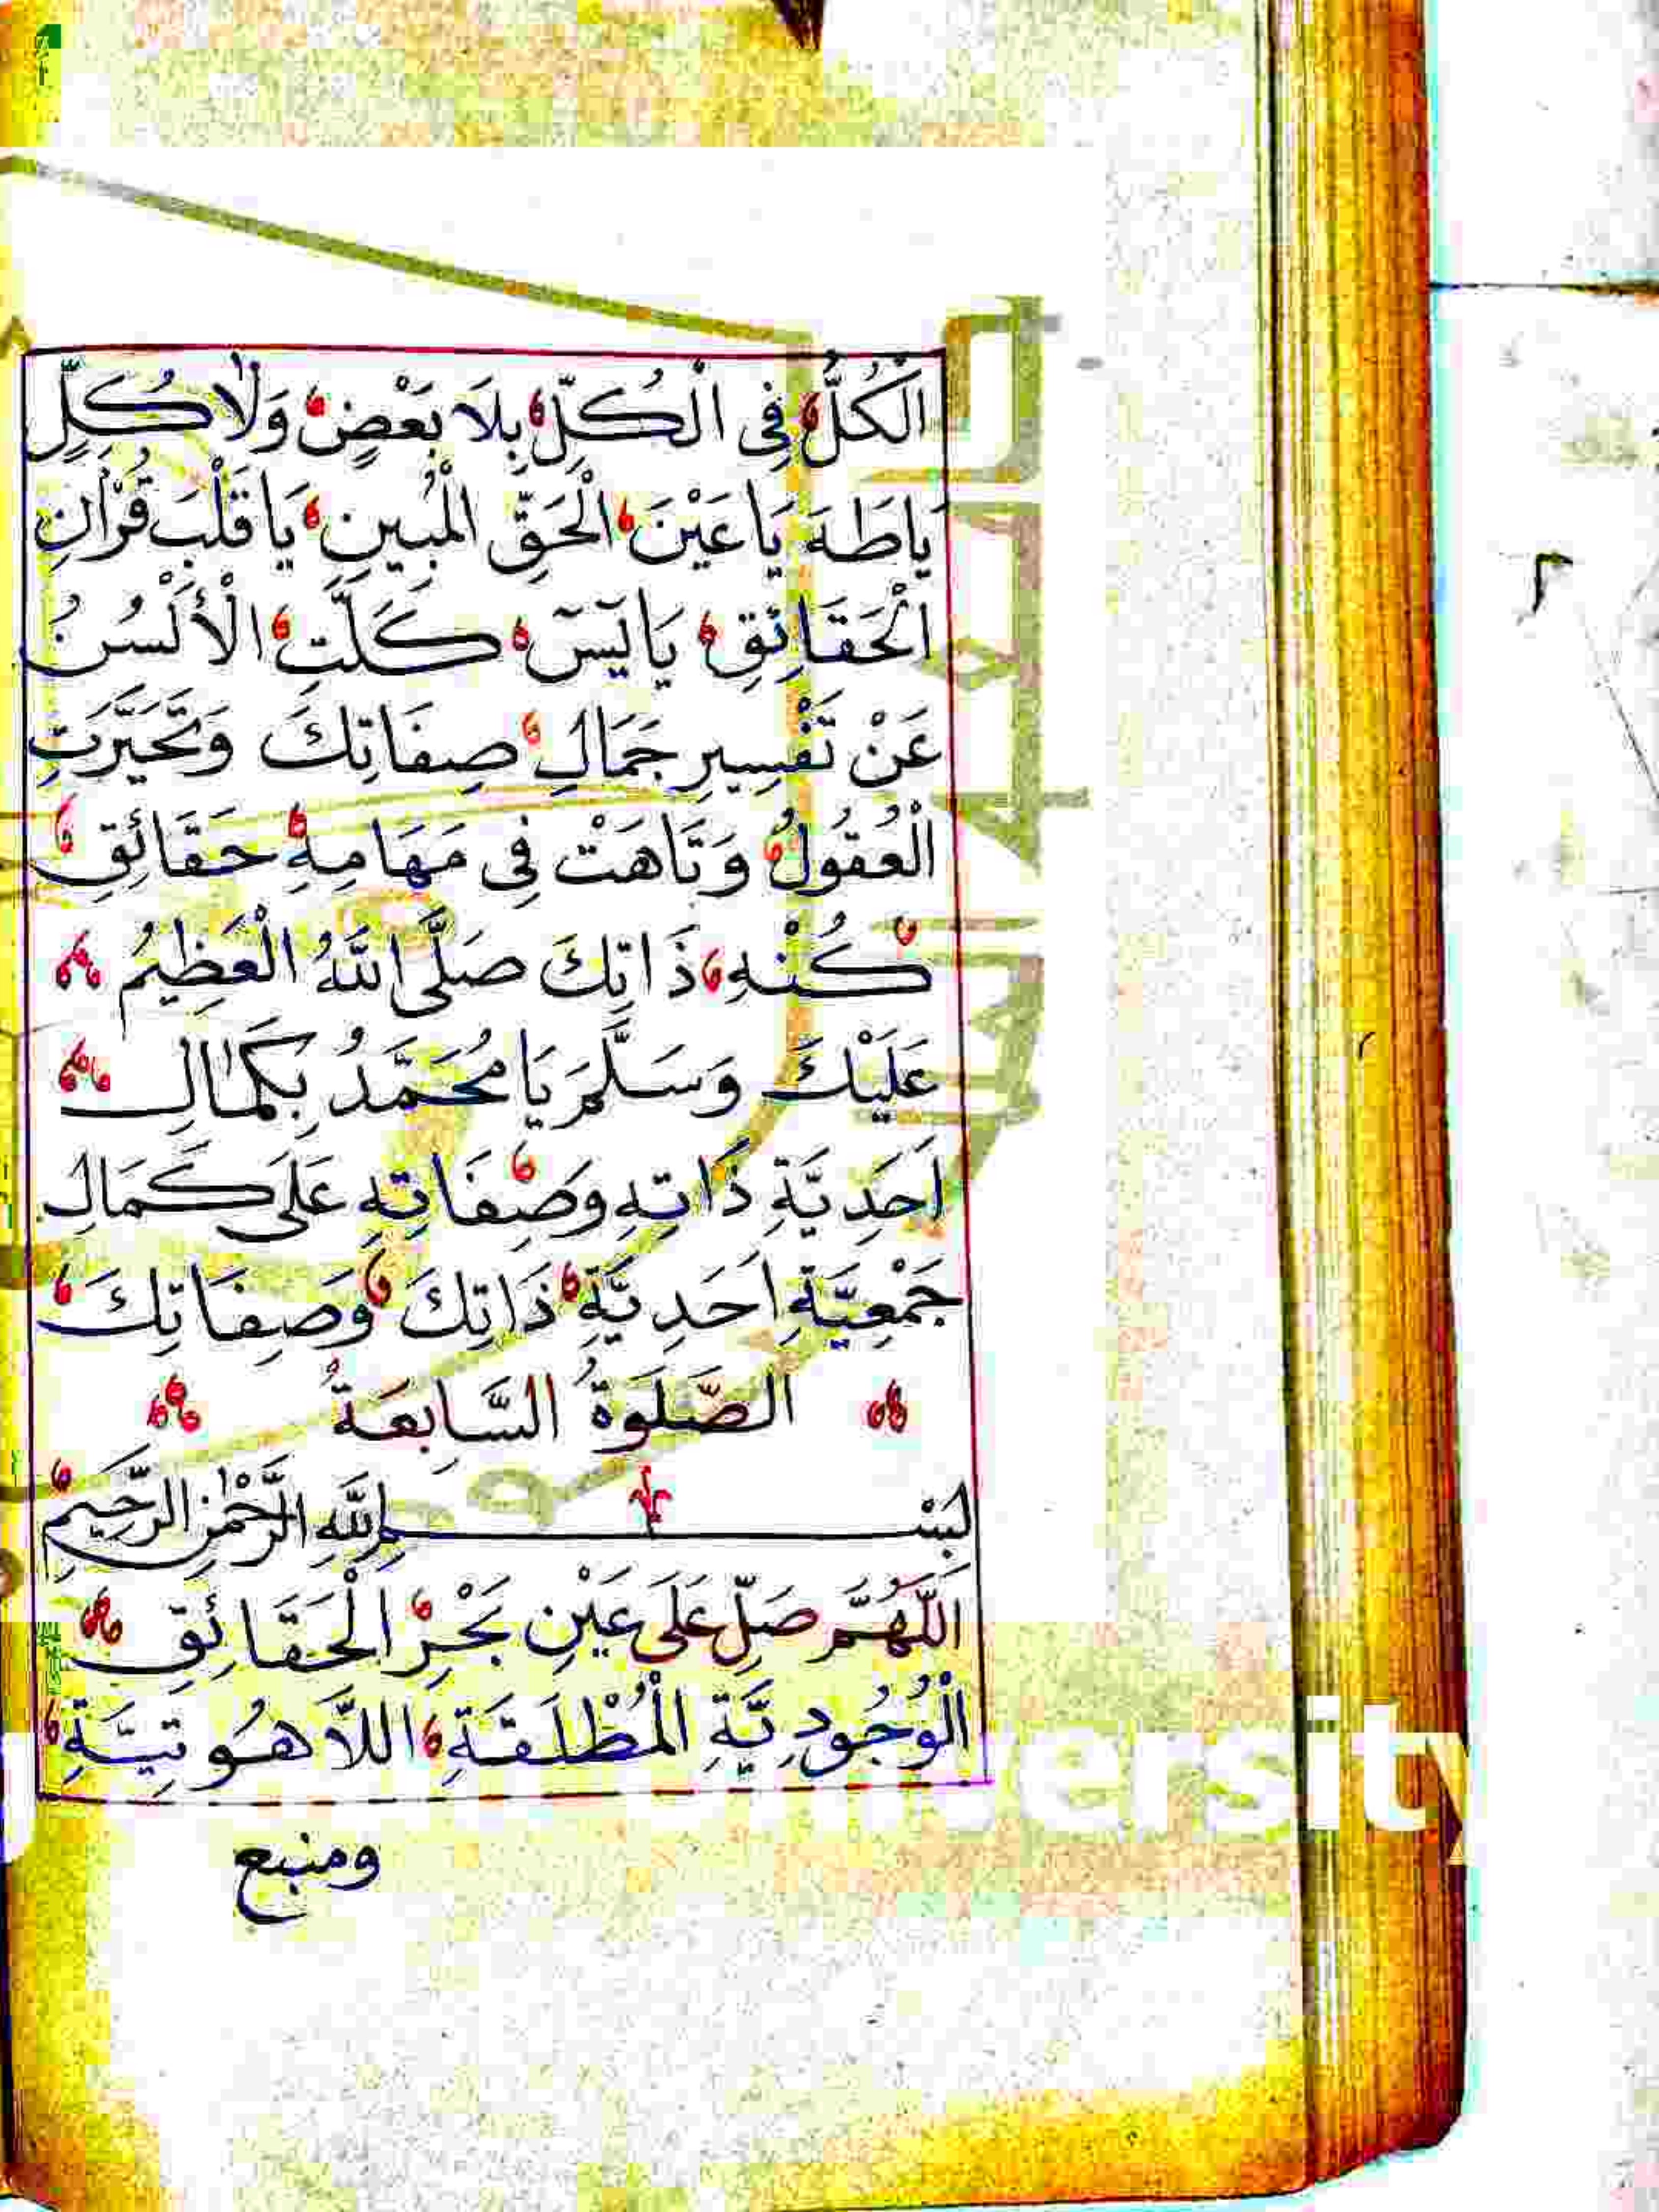 اَلْكُلُّ فِى الْكُلِّ بِلَا بَعْضٍ وَلَا كُلٍّ
يَاطٰهَ يَا عَيْنَ الْحَقِّ الْمُبِينِ يَا قَلْبَ قُرْاٰنِ
الْحَقَائِقِ يَا يٰسٓ كَلَّتِ الْأَلْسُنُ
عَنْ تَفْسِيرِ جَمَالِ صِفَاتِكَ وَتَحَيَّرَتِ
الْعُقُولُ وَتَاهَتْ فِى مَهَامِهِ حَقَائِقِ
كُنْهِ ذَاتِكَ صَلَّى اللّٰهُ الْعَظِيمُ
عَلَيْكَ وَسَلَّمَ يَا مُحَمَّدُ بِكَمَالِ
اَحَدِيَّةِ ذَاتِهِ وَصِفَاتِهِ عَلَى كَمَالِ
جَمْعِيَّةِ اَحَدِيَّةِ ذَاتِكَ وَصِفَاتِكَ
الصَّلَوةُ السَّابِعَةُ
بِسْمِ اللّٰهِ الرَّحْمٰنِ الرَّحِيمِ
اَللّٰهُمَّ صَلِّ عَلَى عَيْنِ بَحْرِ الْحَقَائِقِ
الْوُجُودِيَّةِ الْمُطْلَقَةِ اللَّاهُوتِيَّةِ
ومنبع